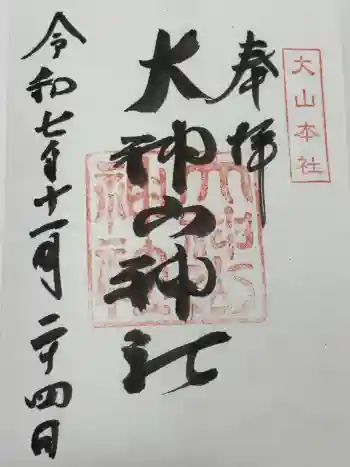 大山本社
奉拝
大神山神社
大神山神社
令和七年十一月二十四日